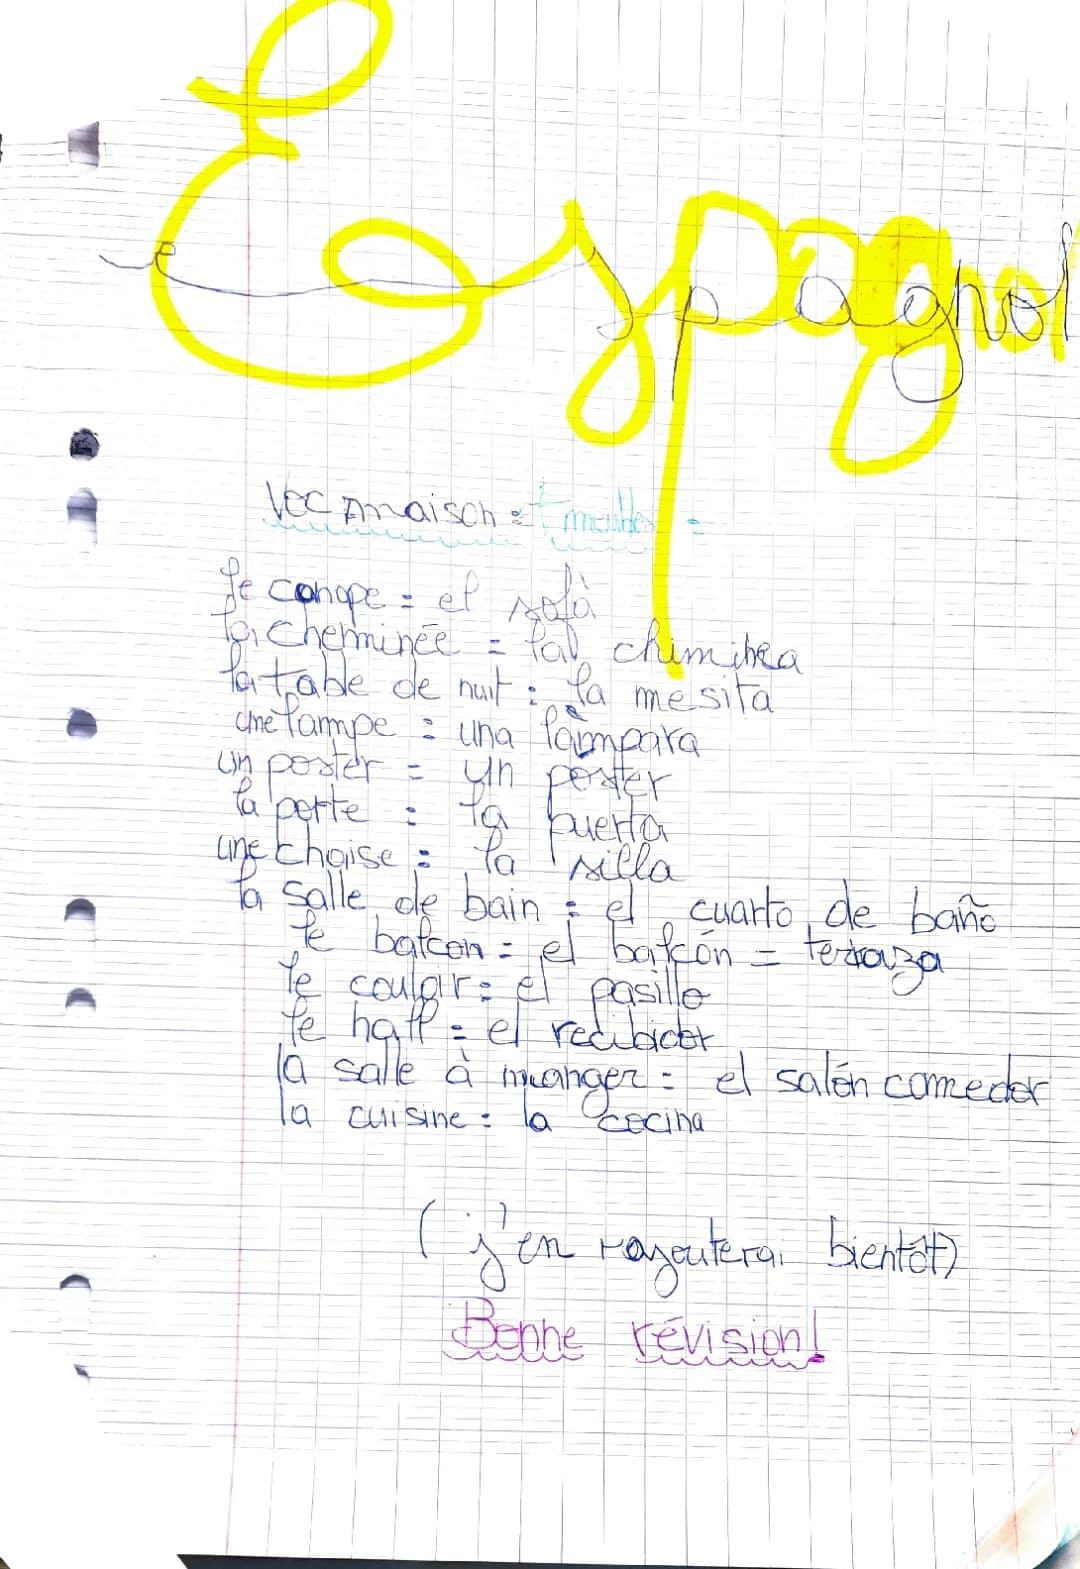 Espagnol
Voc maison + meubles :
le canape = el sofà
la cheminée = la chiminea
la table de nuit : la mesita
une lampe : una làmpara
un poster = un poster
la porte : la puerta
une chaise : la silla
la salle de bain : el cuarto de baño
le balcon = el balcón = terraza
le couloir = el pasillo
le hall = el recibidor
la salle à manger = el salón comedor
la cuisine : la cocina
(j'en rajouterai bientôt)
Bonne révision!